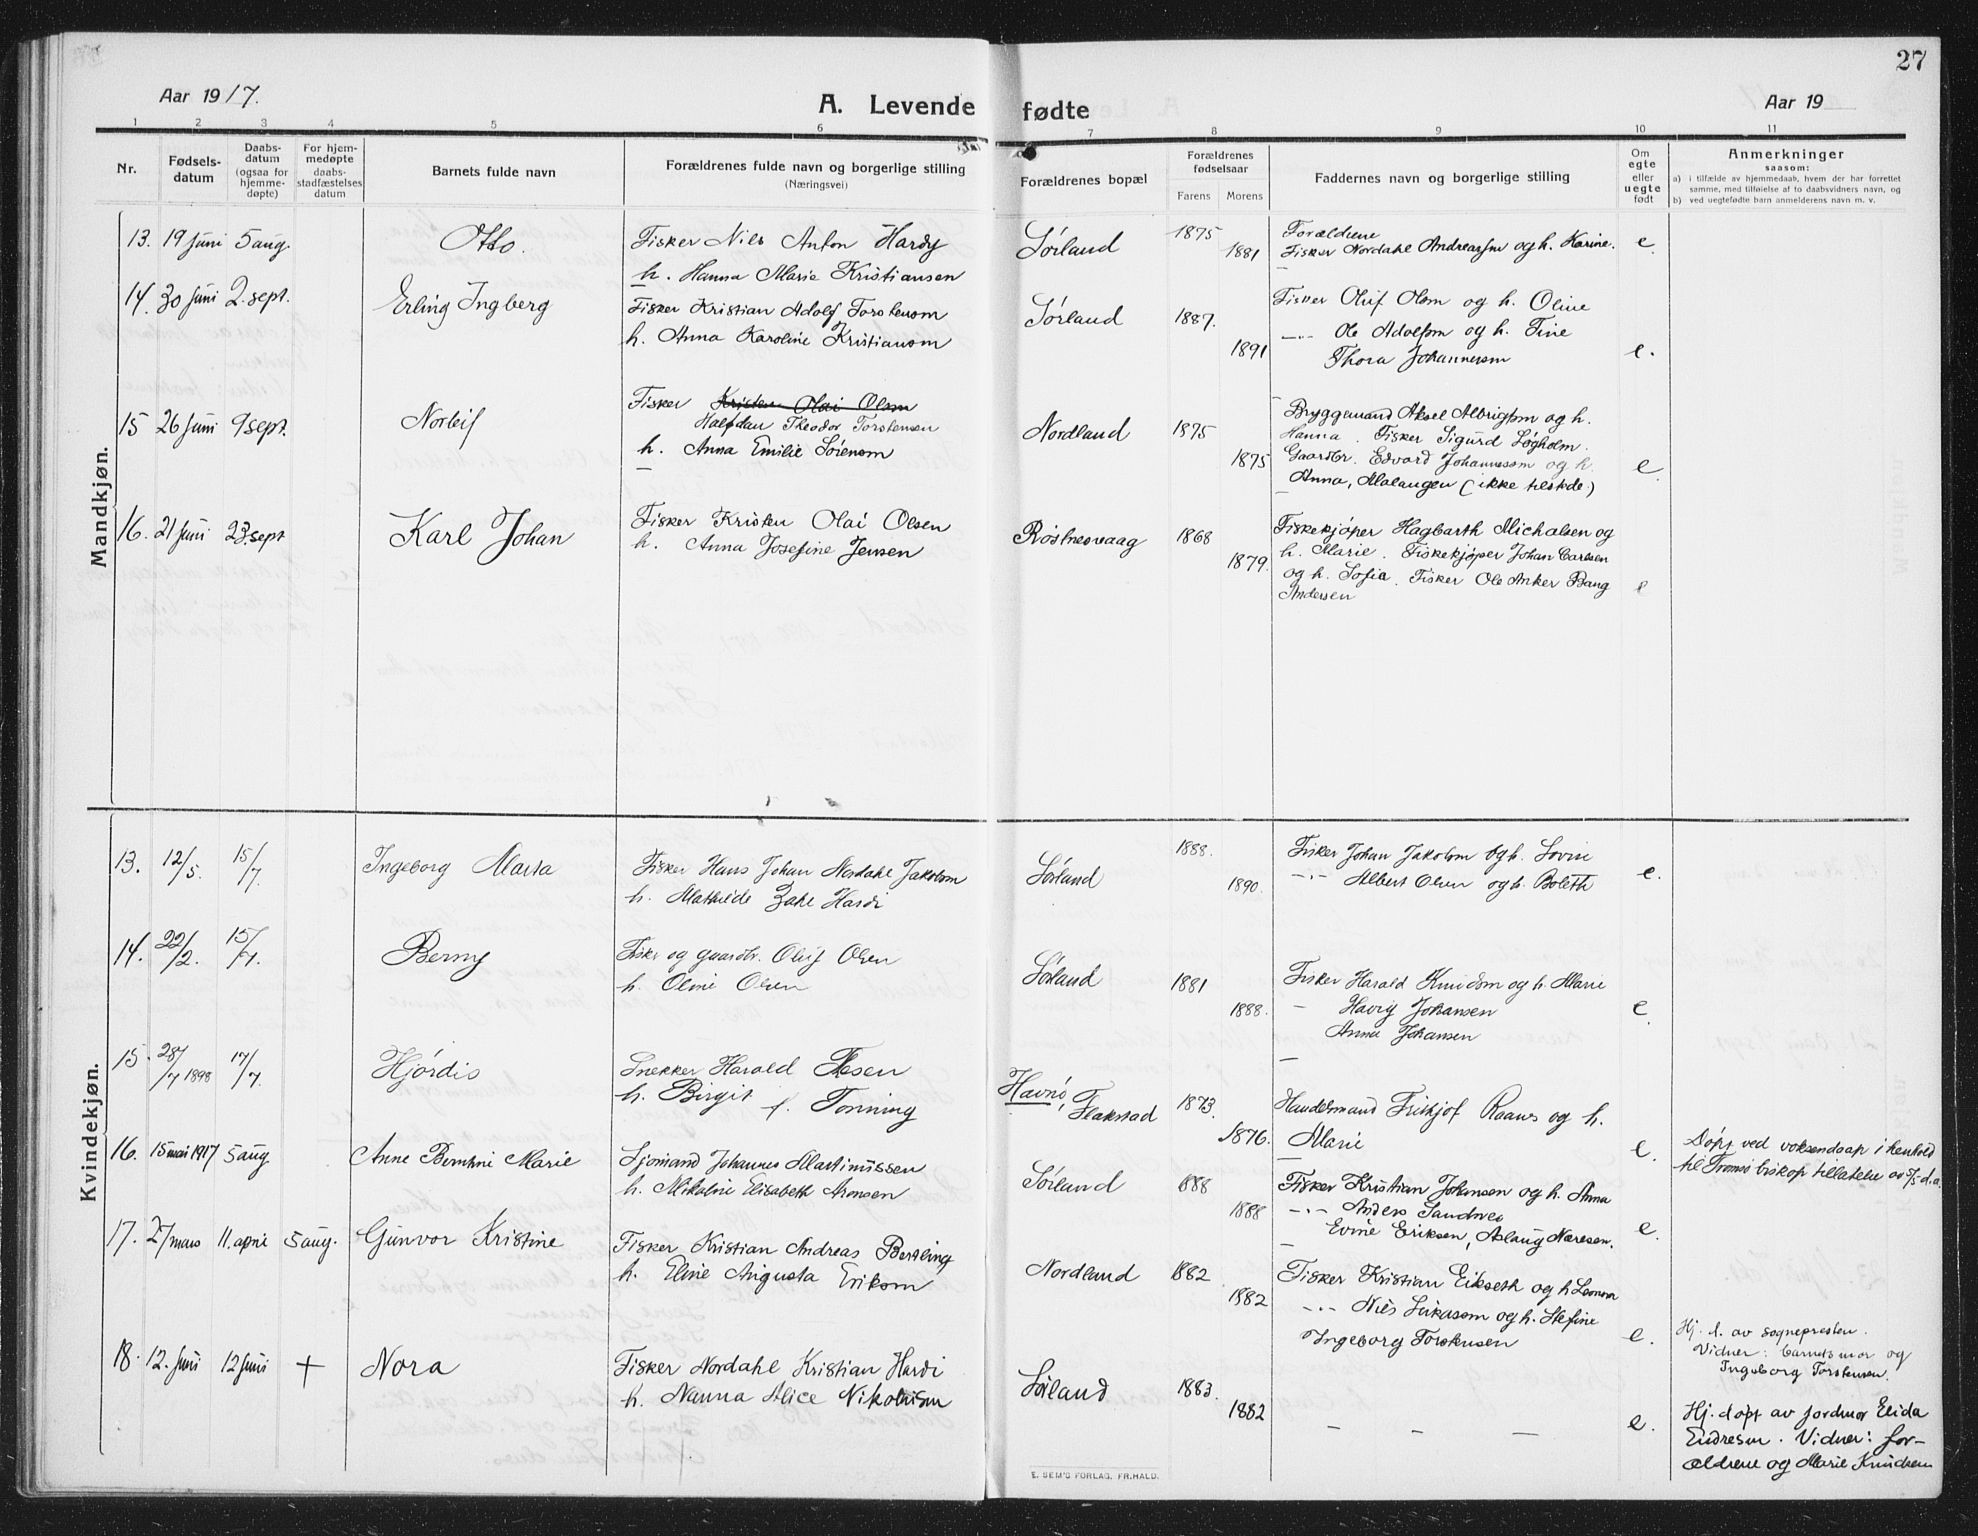 27
Aar 1917.
A. Levende fødte
Aar 19
1 2 3 4 5 6 7 8 9 10 11
Nr.
Fødsels-
datum
Daabs-
datum
(ogsaa for
hjemme-
døpte)
For hjem-
medøpte
daabs-
stadfæstelses
datum
Barnets fulde navn
Forældrenes fulde navn og borgerlige stilling
(Næringsvei)
Forældrenes bopæl
Forældrenes
fødselsaar
Farens Morens
Faddernes navn og borgerlige stilling
Om
egte
eller
uegte
født
Anmerkninger
saasom:
a) i tilfælde av hjemmedaab, hvem der har forrettet
samme, med tilføielse af to daabsvidners navn, og
b) ved uegtefødte barn anmelderens navn m. v.
Mandkjøn.
13. 19 juni 5 aug. Otto. Fisker Nils Anton Hardy
h. Hanna Marie Kristiansen
Sørland 1875 1881
Forældrene
Fisker Nordahl Andreassen og h. Karine. e
14. 30 juni 2. sept. Erling Ingberg
Fisker Kristian Adolf Torstensen
h. Anna Karoline Kristiansen
Sørland 1887. 1891
Fisker Oluf Olsen og h. Oline
—"— Ole Adolfsen og h. Tine
Thora Johannessen e.
15 26 juni 9 sept. Norleif
Fisker Kristen Olai Olsen
Halfdan Theodor Torstensen
h. Anna Emilie Sørensen
Nordland 1875 1875
Bryggemand Aksel Albrigtsen og h.
Hanna. Fisker Sigurd Løgholm.
Gaardbr. Edvard Johannessen og h.
Anna, Malangen (ikke tilstede.) e
16. 21 juni 23. sept Karl Johan
Fisker Kristen Olai Olsen
h. Anna Josefine Jensen
Røstnesvaag 1868 1879.
Fiskekjøper Hagbarth Michalsen og
h. Marie. Fiskekjøper Johan Carlsen
og h. Sofia. Fisker Ole Anker Bang
Andersen e
Kvindekjøn.
13. 12/5. 15/7. Ingeborg Marta
Fisker Hans Johan Nordahl Jakobsen
h. Mathilde Hardi
Sørland 1888. 1890.
Fisker Johan Jakobsen og h. Lovise
—"— Albert Olsen og h. Boleth e.
14. 22/2. 15/7. Berny
Fisker og gaardbr. Oluf Olsen
h. Oline Olsen
Sørland 1881 1888.
Fisker Harald Knudsen og h. Marie
— Havig Johansen
Anna Johansen e.
15. 28/7 1898 17/7. Hjørdis
Snekker Harald
h. Birgit f. Tonning
Havnø, Flakstad 1873. 1876.
Handelsmand Fritjof Raans og h.
Marie e.
Døpt ved voksendaap i henhold
til Tromsø biskop tillatelse av 7/5 d.a.
16. 15 mai 1917 5 aug Anne Berntine Marie
Sjømand Johannes Martinussen
h. Nikoline Elisabeth Aronsen
Sørland 1888 1888
Fisker Kristian Johansen og h. Anna
—"— Anders Sandnes
Evine Eriksen, Aslaug Næresen. e.
17. 27 mars 11. april 5 aug. Gunvor Kristine
Fisker Kristian Andreas Bertling
h. Eline Augusta Eriksen
Nordland 1882 1882
Fisker Kristian Eikseth og h. Leonora
—"— Nils Lukassen og h. Stefine
Ingeborg Torstensen e.
Hj. d. av sognepresten.
Vidner: barnets mor og
Ingeborg Torstensen.
18. 12. juni 12 juni + Nora
Fisker Nordahl Kristian Hardi
h. Nanna Alice Nikolaisen
Sørland 1883. 1882
— — — e.
Hj. døpt av jordmor Elida
Endresen. Vidner: for-
ældrene og Marie Knudsen
E. SEM'S FORLAG, FR.HALD.